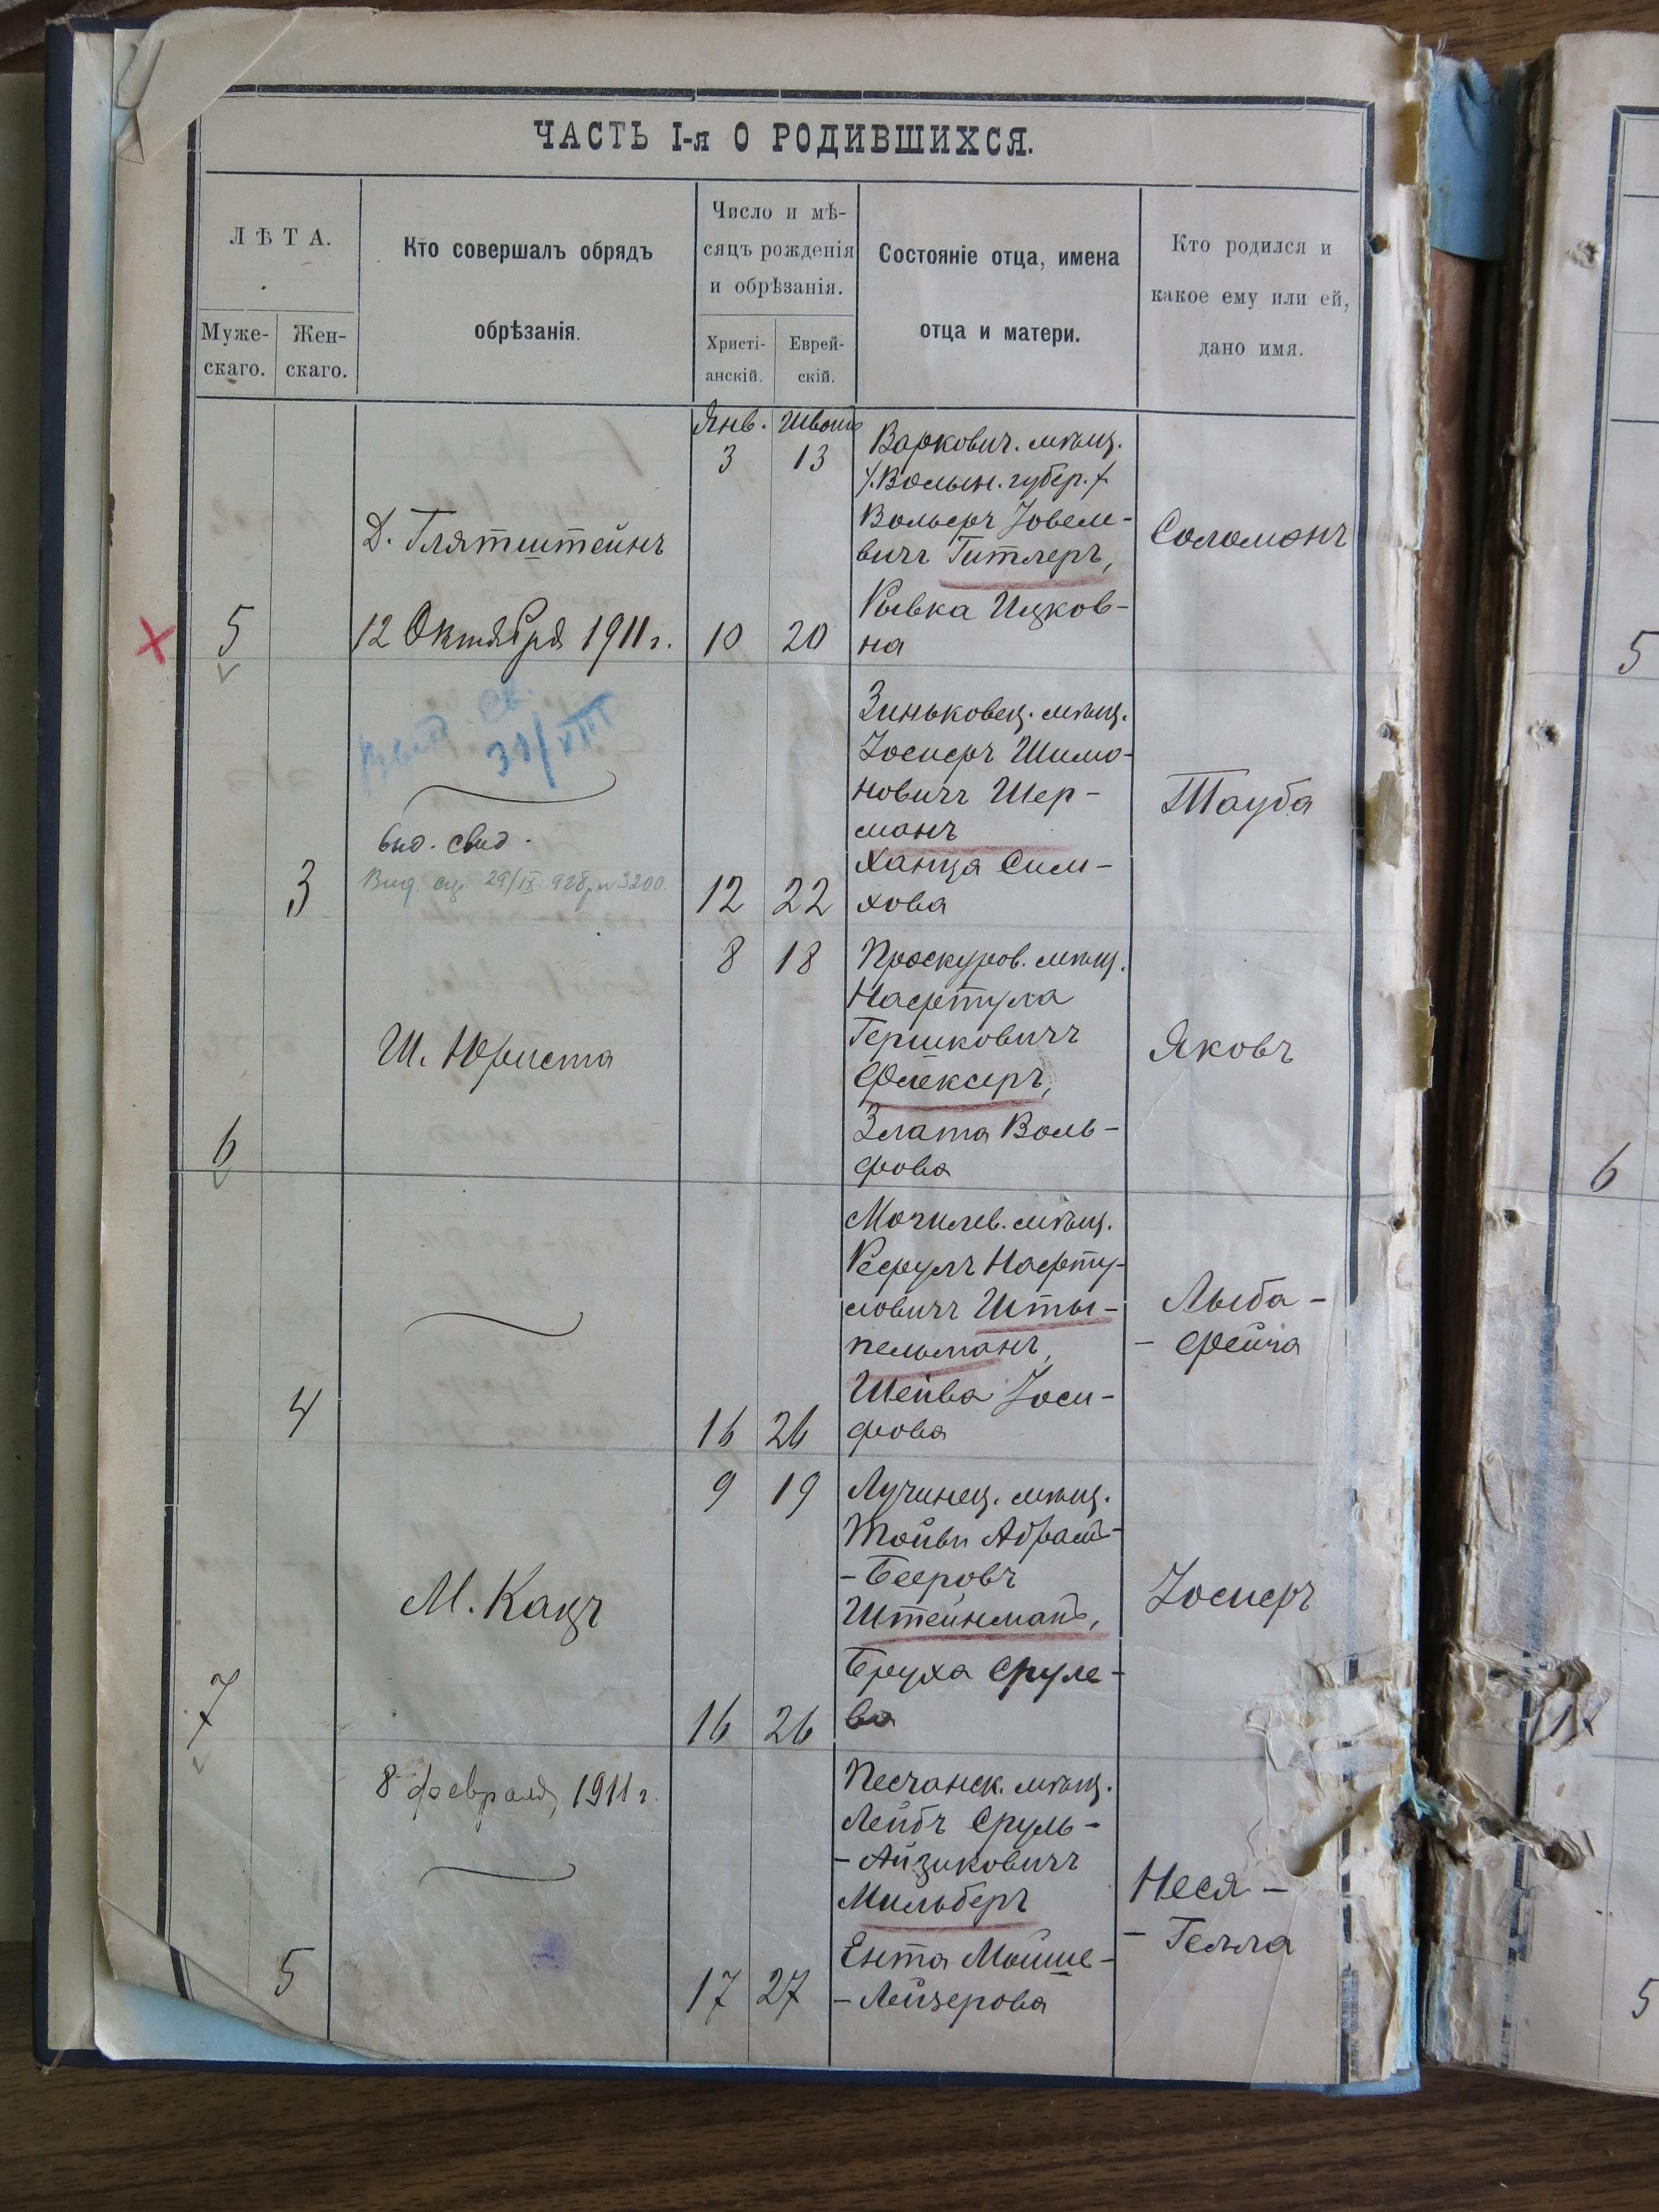 ЧАСТЬ I-я О РОДИВШИХСЯ.
ЛѢТА.
Муже-
скаго.
Жен-
скаго.
Кто совершалъ обрядъ
обрѣзанія.
Число и мѣ-
сяцъ рожденія
и обрѣзанія.
Христі-
анскій.
Еврей-
скій.
Состояніе отца, имена
отца и матери.
Кто родился и
какое ему или ей,
дано имя.
5
Д. Глятштейнъ
12 Октября 1911 г.
Янв. Шватъ
3 13
10 20
Варкович. мѣщ.
/.Волын. губер./
Вольфъ Іовеле-
вичъ Гитлеръ,
Рывка Ицков-
на
Соломонъ
3
выд. св.
31/XIII
выд. свид.
Выд. 29/IX 928 р. № 3200.
12 22
Зиньковец. мѣщ.
Іосифъ Шимо-
новичъ Шер-
манъ
Ханца Сим-
хова
Тауба
6
Ш. Юриста
8 18
Проскуров. мѣщ.
Нафтула
Гершковичъ
Флексеръ,
Злата Воль-
фова
Яковъ
4
16 26
Могилев. мѣщ.
Рефулъ Нафту-
ловичъ Шты-
пельманъ,
Шейва Іоси-
фова
Лыба-
-Фейга
7
М. Кацъ
9 19
16 26
Лучинец. мѣщ.
Тойви Абрам-
-Бееровъ
Штейнманъ,
Бруха Сруле-
ва
Іосифъ
5
8 февраля, 1911 г.
17 27
Песчанск. мѣщ.
Лейбъ Сруль-
-Айзиковичъ
Мильберъ
Ента Мошше-
-Лейзерова
Неся-
-Гелла
5
6
17
5